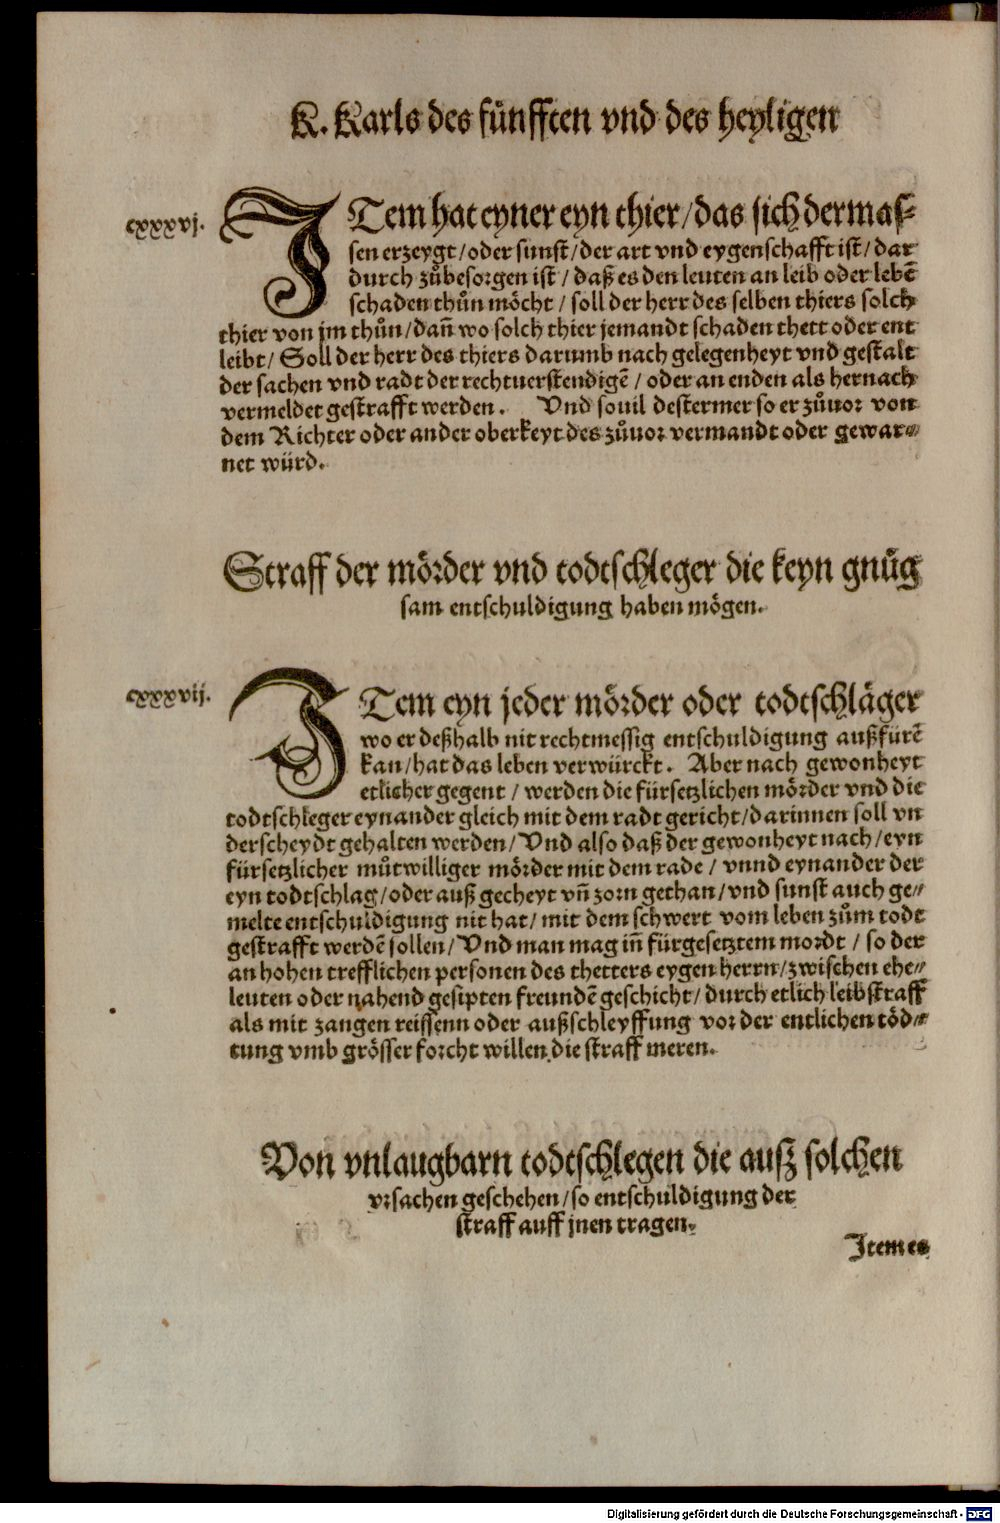 K. Karls des fünfften vnd des heyligen
cxxxvj.
ITem hat eyner eyn thier/das sich dermas⸗
sen erzeygt/oder sunst/der art vnd eygenschafft ist/dar
durch zůbesorgen ist/daß es den leuten an leib oder lebē
schaden thůn möcht/soll der herr des selben thiers solch
thier von jm thůn/dañ wo solch thier jemandt schaden thett oder ent
leibt/Soll der herr des thiers darumb nach gelegenheyt vnd gestalt
der sachen vnd radt der rechtuerstendigē/oder an enden als hernach
vermeldet gestrafft werden. Vnd souil destermer so er zůuor von
dem Richter oder ander oberkeyt des zůuor vermandt oder gewar⸗
net würd.
Straff der mörder vnd todtschleger die keyn gnůg
sam entschuldigung haben mögen.
cxxxvij.
ITem eyn jeder mörder oder todtschläger
wo er deßhalb nit rechtmessig entschuldigung außfürē
kan/hat das leben verwürckt. Aber nach gewonheyt
etlicher gegent/werden die fürsetzlichen mörder vnd die
todtschleger eynander gleich mit dem radt gericht/darinnen soll vn
derscheydt gehalten werden/Vnd also daß der gewonheyt nach/eyn
fürsetzlicher můtwilliger mörder mit dem rade/vnnd eynander der
eyn todtschlag/oder auß gecheyt vñ zorn gethan/vnd sunst auch ge⸗
melte entschuldigung nit hat/mit dem schwert vom leben zům todt
gestrafft werdē sollen/Vnd man mag iñ fürgesetztem mordt/so der
an hohen trefflichen personen des thetters eygen herrn/zwischen ehe⸗
leuten oder nahend gesipten freundē geschicht/durch etlich leibstraff
als mit zangen reissenn oder außschleyffung vor der entlichen töd⸗
tung vmb grösser forcht willen die straff meren.
Von vnlaugbarn todtschlegen die ausz solchen
vrsachen geschehen/so entschuldigung der
straff auff jnen tragen.
Item es
Digitalisierung gefördert durch die Deutsche Forschungsgemeinschaft - DFG